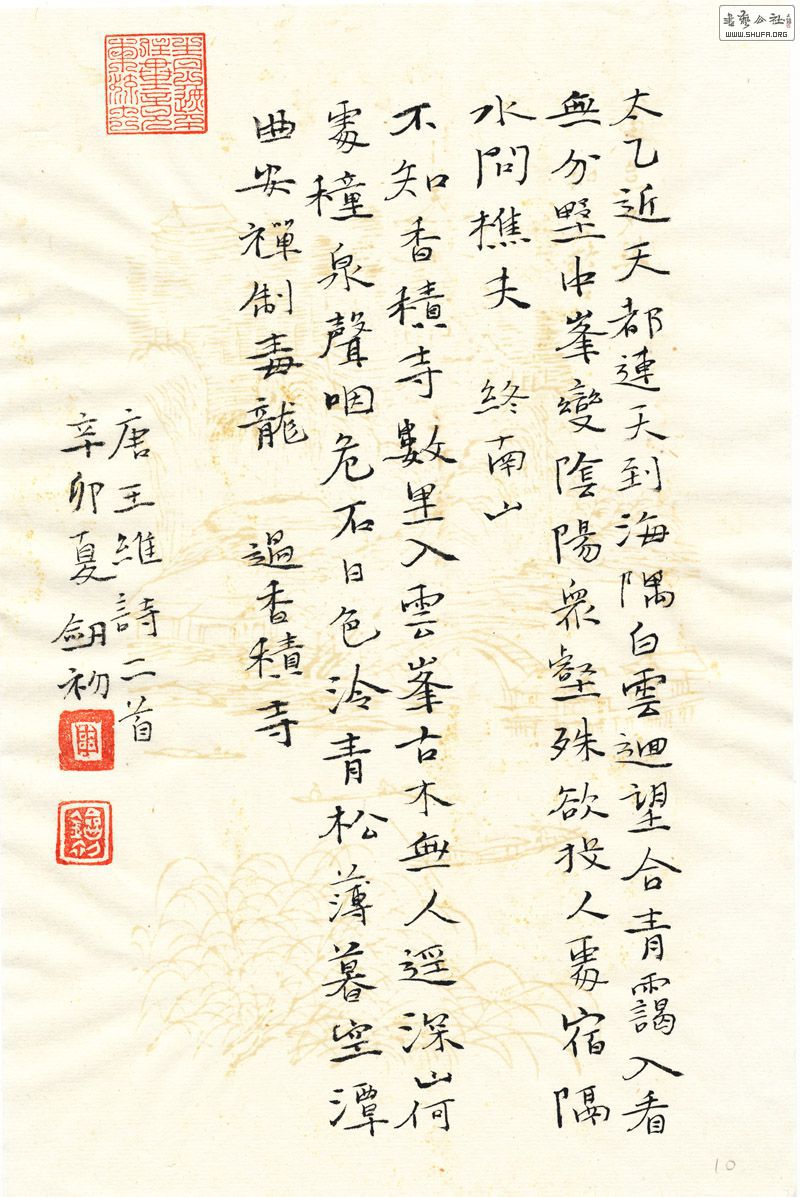 太乙近天都連天到海隅白雲迴望合青靄入看
無分墅中峯變陰陽眾壑殊欲投人處宿隔
水問樵夫 終南山
不知香積寺數里入雲峯古木無人逕深山何
處穜泉聲咽危石日色泠青松薄暮空潭
曲安禪制毒龍 過香積寺
唐王維詩二首
辛卯夏 劎初
書藝公社
WWW.SHUFA.ORG
10